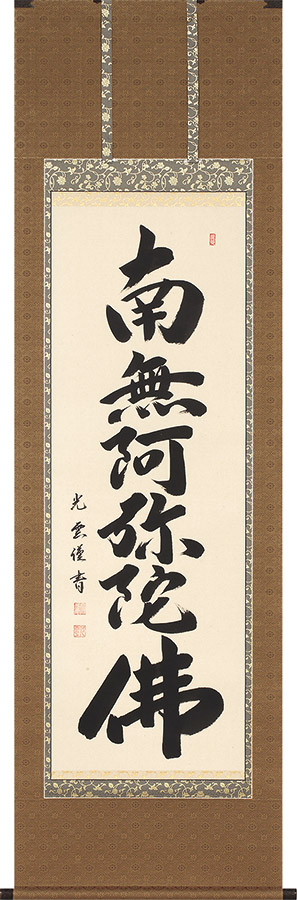 南無阿弥陀佛
光雲僊書